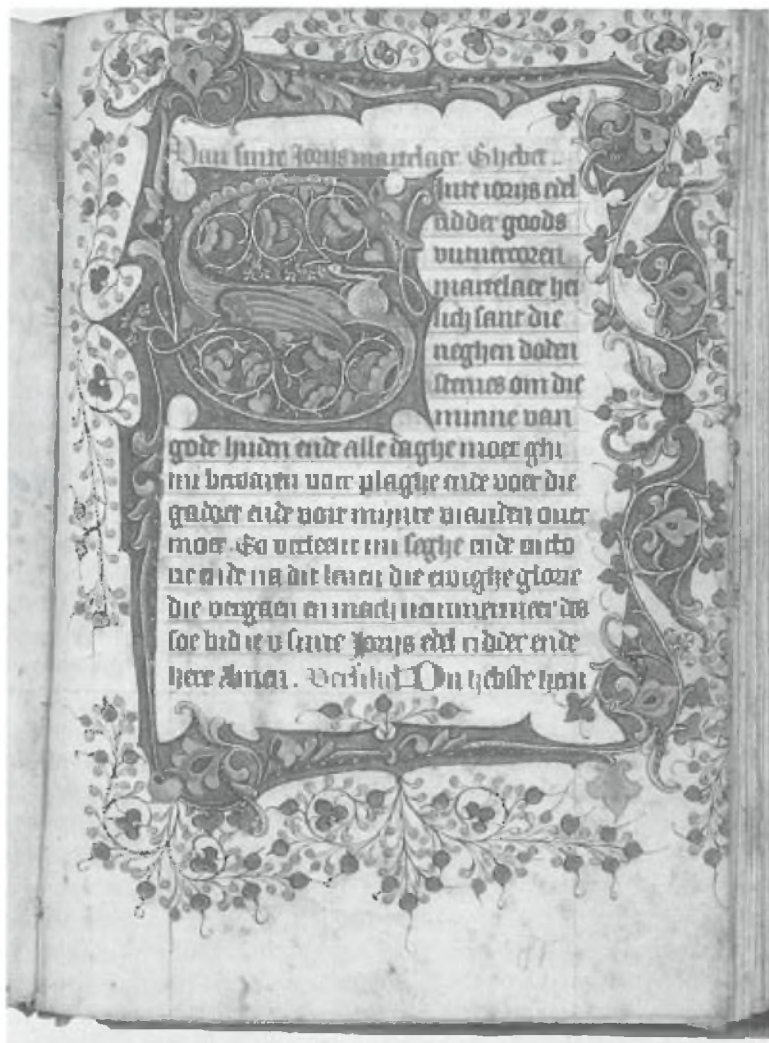 Van sinte Jorys martelaer Ghebet
Sinte iorijs edel
ridder goods
vutuercoren
martelaer hei
lich sant die
neghen doden
sterues om die
minne van
gode huden ende alle daghe moet ghi
mi bewaren voer plaghe ende voer die
quaet ende voir mijnre vianden ouer
moet. En verleent mi seghe ende victo
rie ende na dit leuen die ewighe glorie
die vergaen en mach nemmermeer des
soe bid ic v sinte Jorijs edel ridder ende
here Amen. Versikel Du hebste hem